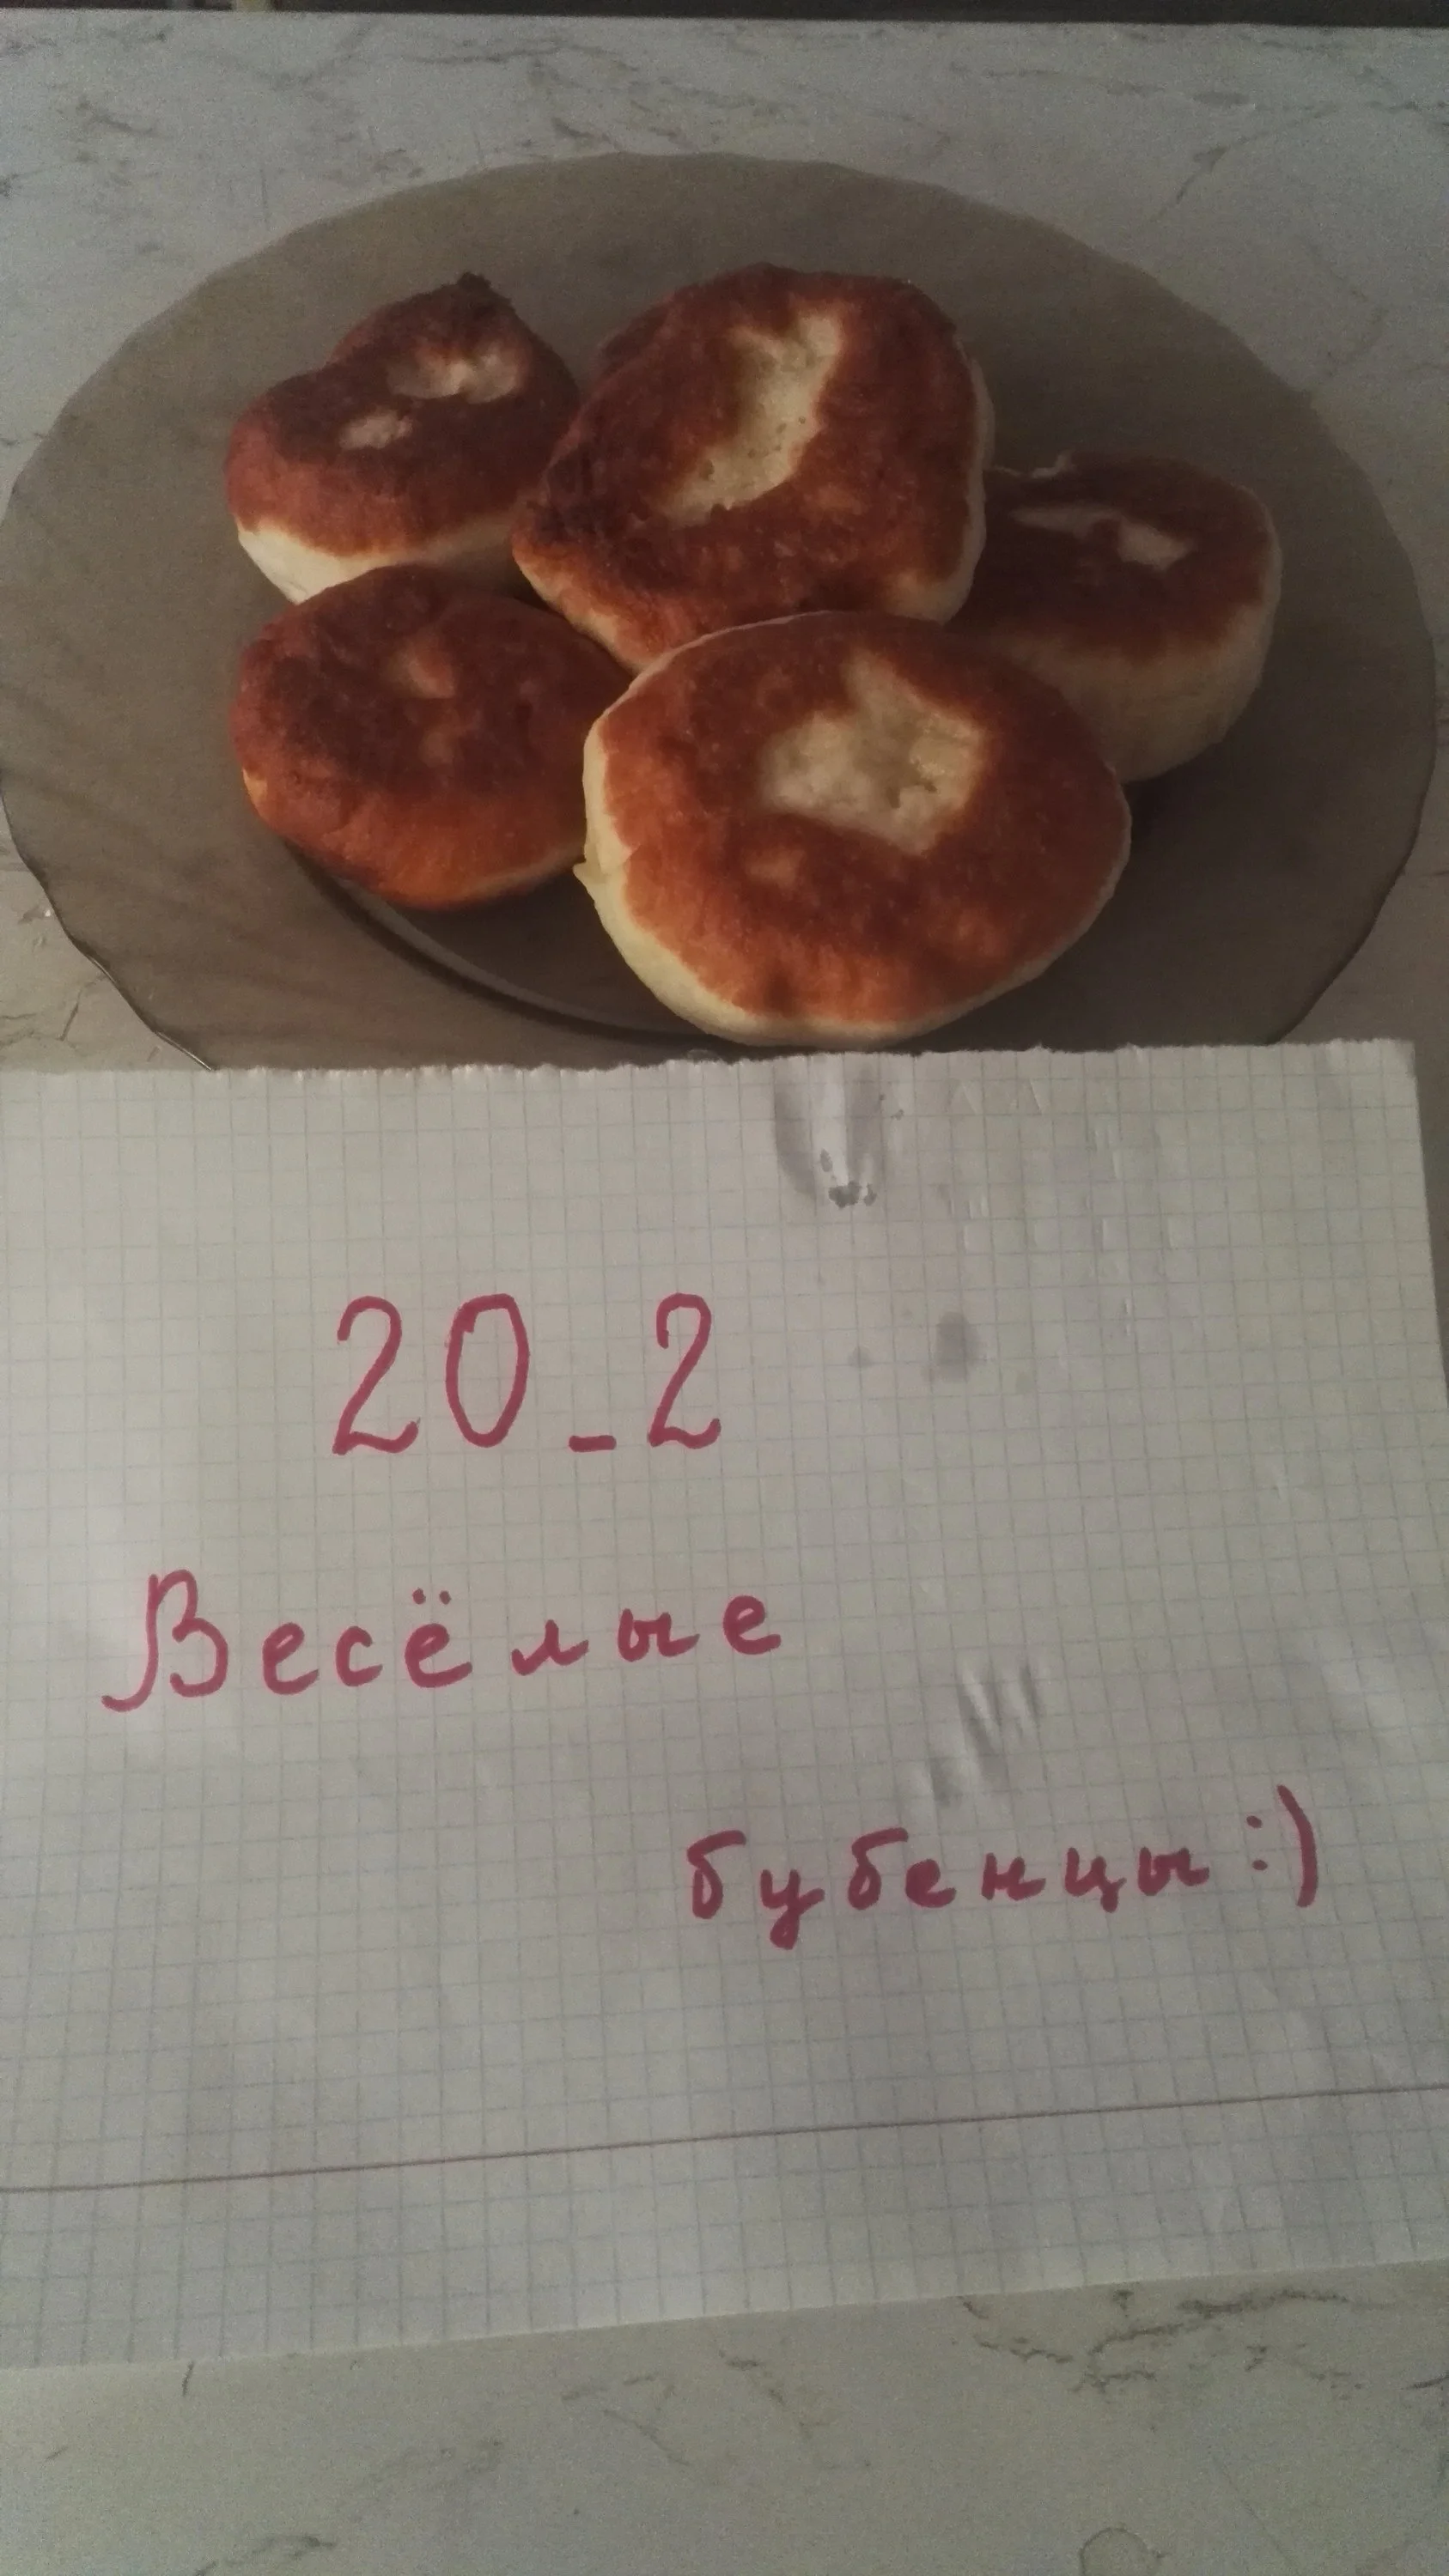 20_2
Весёлые
бубенцы :)